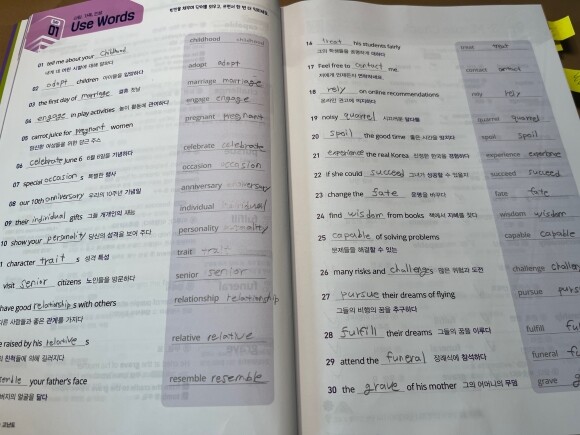 01 Use Words
01 tell me about your childhood
childhood childhood
02 adopt children 아이들을 입양하다
adopt adopt
03 the first day of marriage 결혼 첫날
marriage marriage
04 engage in play activities 놀이 활동에 관여하다
engage engage
05 carrot juice for pregnant women
임신한 여성들을 위한 당근 주스
pregnant pregnant
06 celebrate June 6 6월 6일을 기념하다
celebrate celebrate
07 special occasion s 특별한 행사
occasion occasion
08 our 10th anniversary 우리의 10주년 기념일
anniversary anniversary
09 their individual gifts 그들 개개인의 재능
individual individual
10 show your personality 당신의 성격을 보여 주다
personality personality
character trait s 성격 특성
trait trait
visit senior citizens 노인들을 방문하다
senior senior
have good relationship s with others
다른 사람들과 좋은 관계를 가지다
relationship relationship
raised by his relative s
친척들에 의해 길러지다
relative relative
resemble your father's face
아버지의 얼굴을 닮다
resemble resemble
16 treat his students fairly
그의 학생들을 공평하게 대하다
treat treat
17 Feel free to contact me.
저에게 언제든지 연락하세요.
contact contact
18 rely on online recommendations
온라인 권고에 의지하다
rely rely
19 noisy quarrel 시끄러운 말다툼
quarrel quarrel
20 spoil the good time 좋은 시간을 망치다
spoil spoil
21 experience the real Korea 진정한 한국을 경험하다
experience experience
22 if she could succeed 그녀가 성공할 수 있을지
succeed succeed
23 change the fate 운명을 바꾸다
fate fate
24 find wisdom from books 책에서 지혜를 찾다
wisdom wisdom
25 capable of solving problems
문제들을 해결할 수 있는
capable capable
26 many risks and challenges 많은 위험과 도전
challenge
27 pursue their dreams of flying
그들의 비행의 꿈을 추구하다
pursue
28 fulfill their dreams 그들의 꿈을 이루다
fulfill
29 attend the funeral 장례식에 참석하다
funeral
30 the grave of his mother 그의 어머니의 무덤
grave